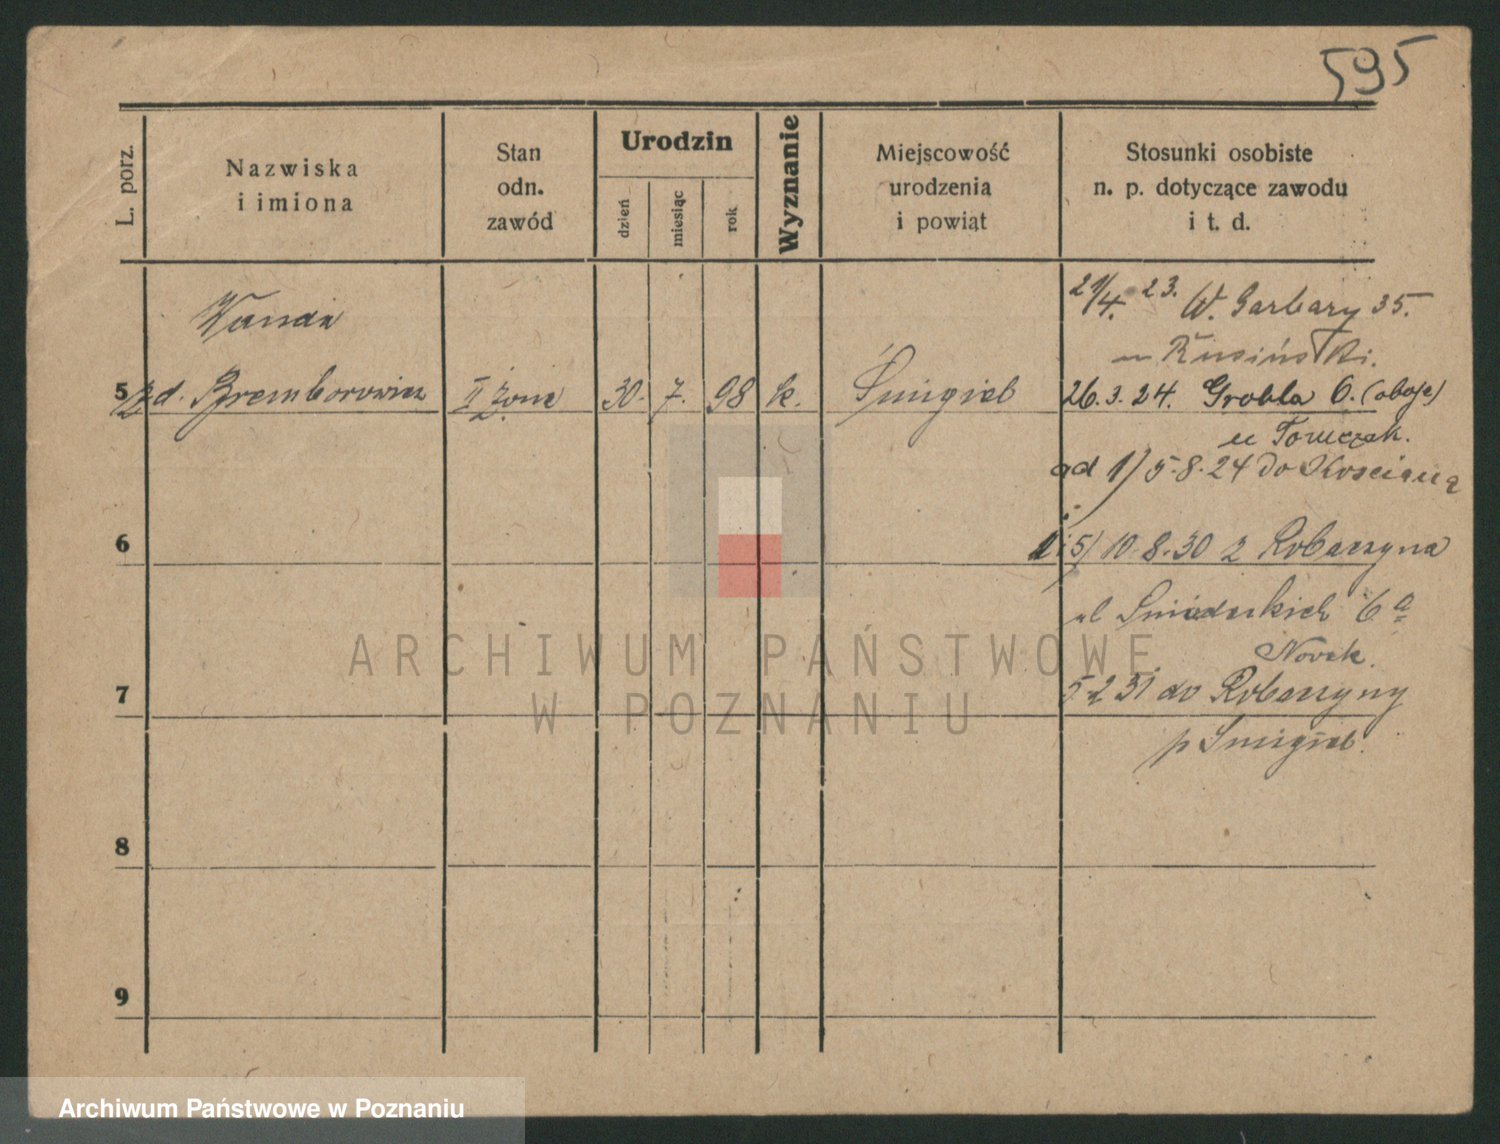 595
L. porz.
Nazwiska
i imiona
Stan
odn.
zawód
Urodzin
dzień
miesiąc
rok
Wyznanie
Miejscowość
urodzenia
i powiąt
Stosunki osobiste
n. p. dotyczące zawodu
i t. d.
21/4. 23. W. Garbary 35.
Wanda
u Rusiński.
5 zd. Bremborowicz II żona 30. 7. 98 k. Śmigiel 26.3.24. Grobla 6. (oboje)
u Tomczak.
ad 1) 5.8.24 do Kościana
6
1 i 5) 10.8.30 z Robaczyna
ul Śniadeckich 6a
Nowak.
7
5 2 31 do Robaczyny
p Śmigiel.
8
9
ARCHIWUM PAŃSTWOWE
W POZNANIU
Archiwum Państwowe w Poznaniu